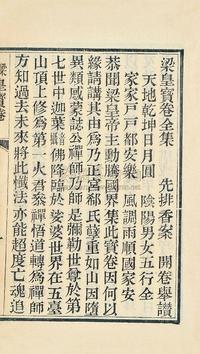 梁皇寶卷全集　先排香案　開卷舉讚
天地乾坤日月圓　陰陽男女五行全
家家戶戶都安樂　風調雨順國家安
恭聞梁皇帝主動騰國界集此寶卷因何以
緣請講其由為乃正宮郗氏孽重如山因墮
異類感蒙誌公禪師乃是彌勒世尊於第
七世中迦葉佛降臨於娑婆世界在五臺
山頂上修為第一火君叅禪悟道轉為禪師
方知過去未來將此懺法亦能超度亡魂追
梁皇寶卷